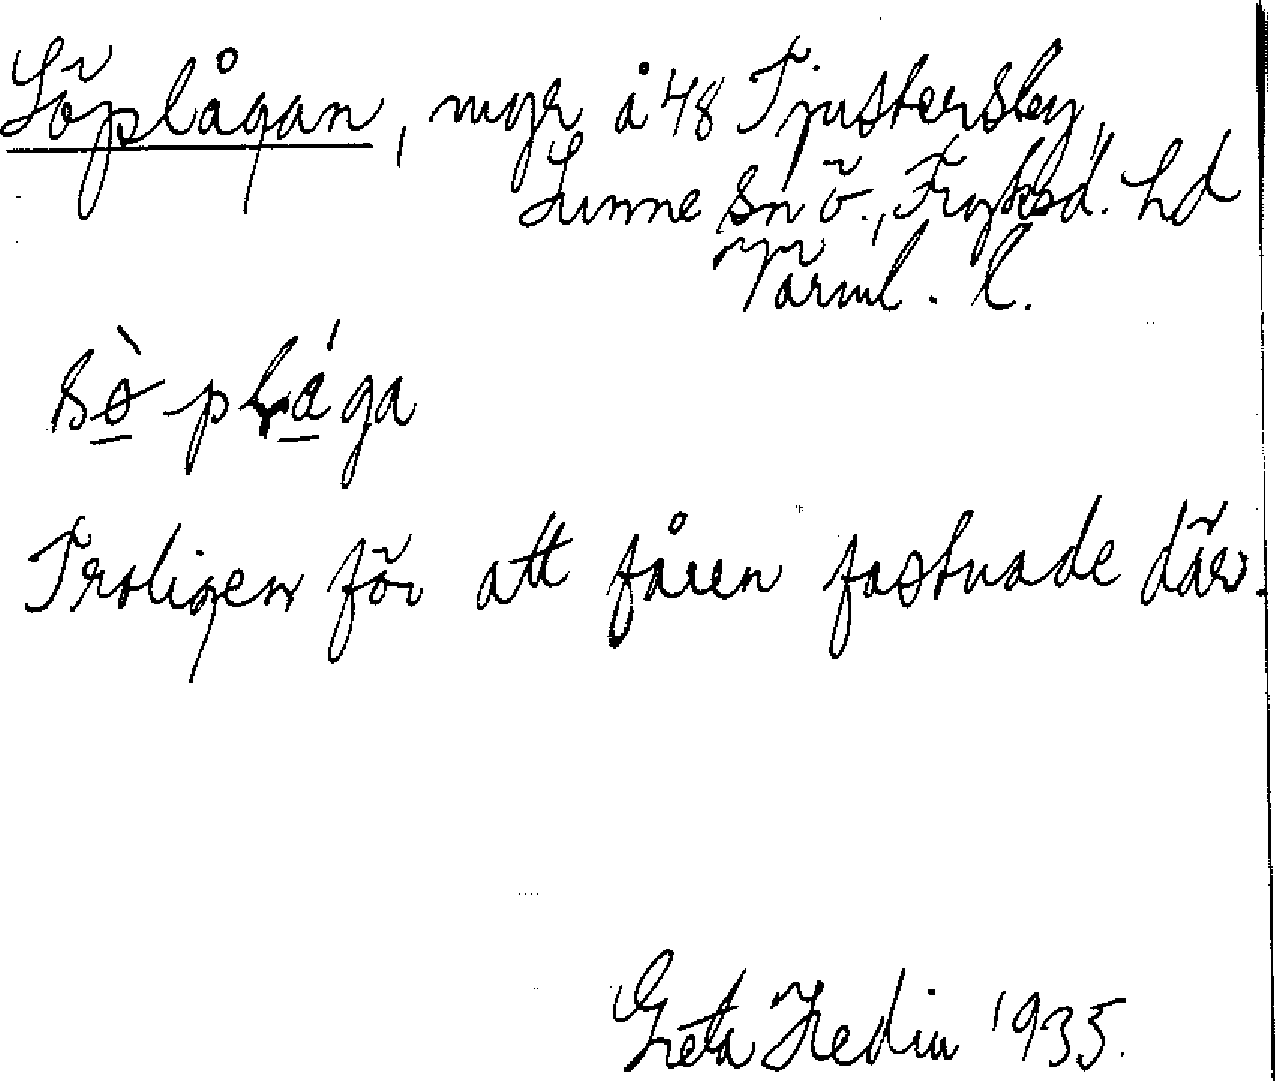 Söplågan, myr å 48 Tjustersby,
Sunne sn ö., Fryksd. hd
Värml. l.
sø̀ plága
Troligen för att fåren fastnade där.
Greta Hedin 1935.